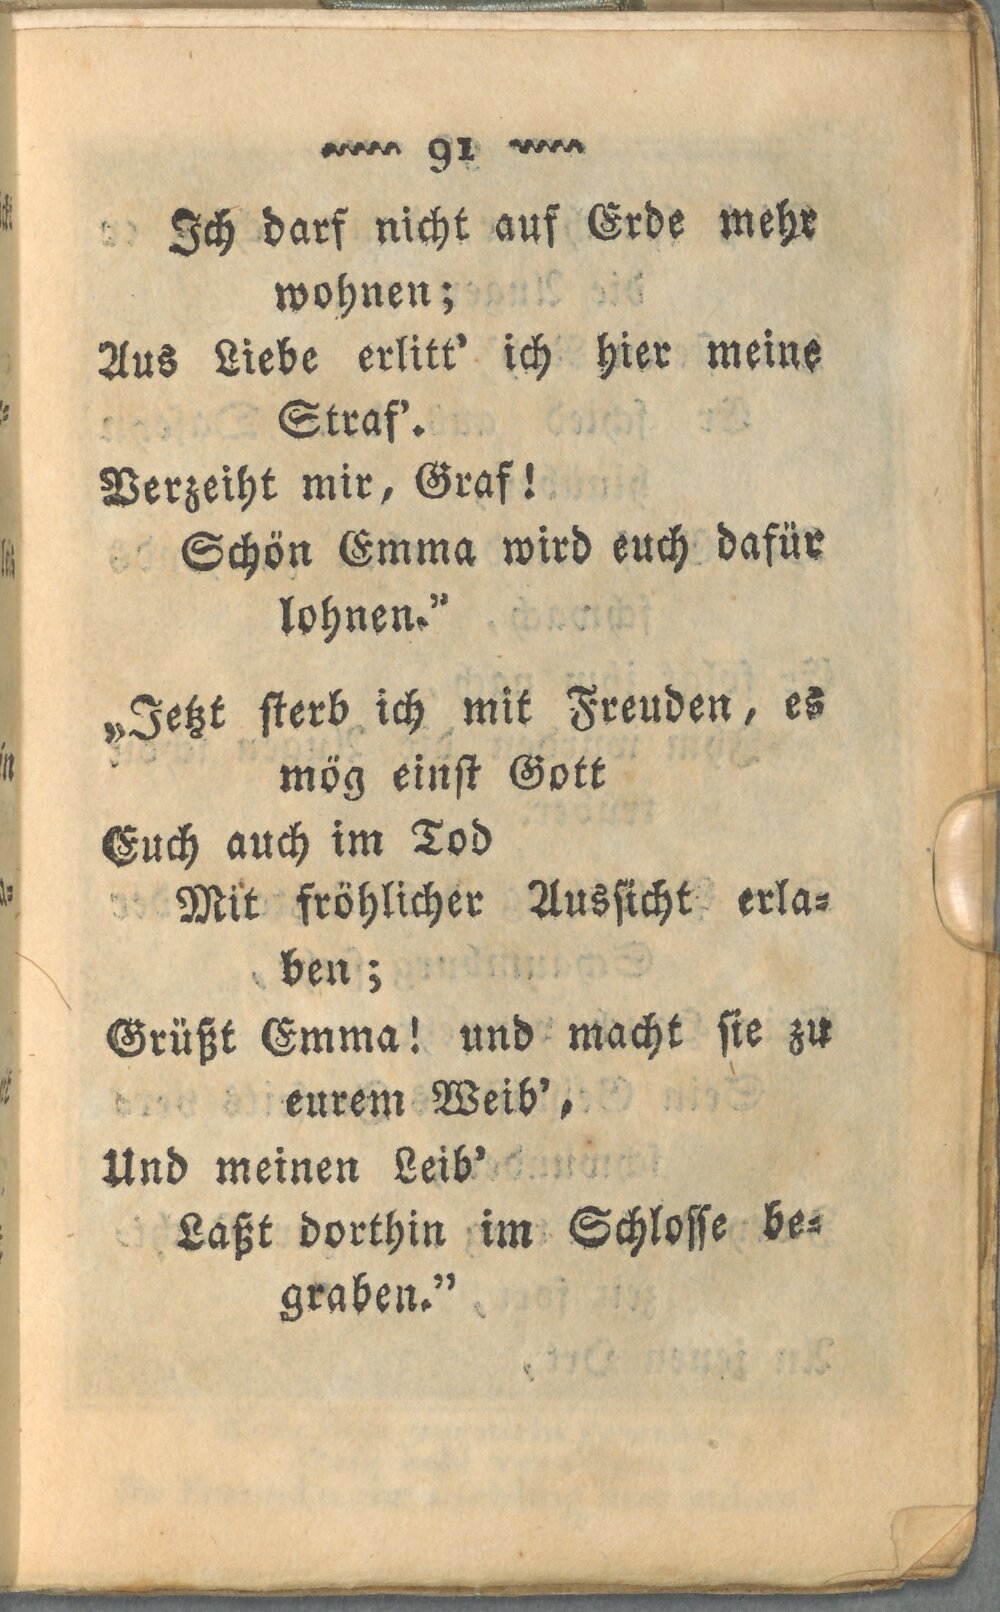 91
Ich darf nicht auf Erde mehr
wohnen;
Aus Liebe erlitt' ich hier meine
Straf'.
Verzeiht mir, Graf!
Schön Emma wird euch dafür
lohnen.”
„Jetzt sterb ich mit Freuden, es
mög einst Gott
Euch auch im Tod
Mit fröhlicher Aussicht erla-
ben;
Grüßt Emma! und macht sie zu
eurem Weib',
Und meinen Leib'
Laßt dorthin im Schlosse be-
graben.”